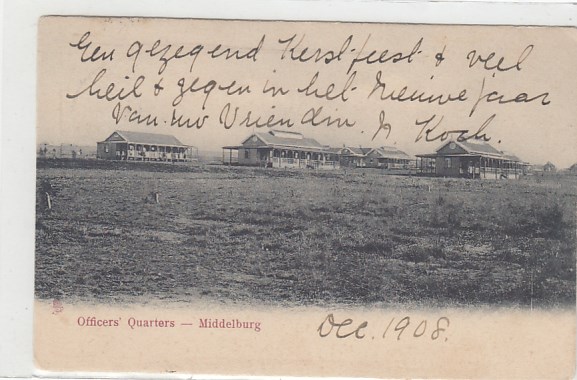 Een gezegend Kerstfeest & veel
heil & zegen in het Nieuwe jaar
Van uw Vriendin. N Koch.
Officers' Quarters — Middelburg
Dec. 1908.